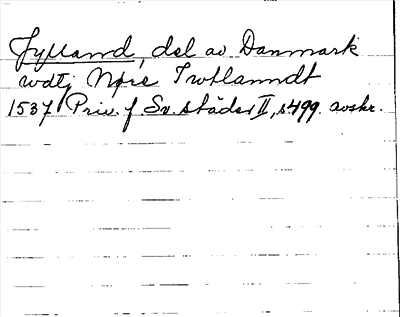 Jylland, del av Danmark
vdtj Nøre Iwtlanndt
1537 Priv. f. Sv. städer II, s 499. avskr.